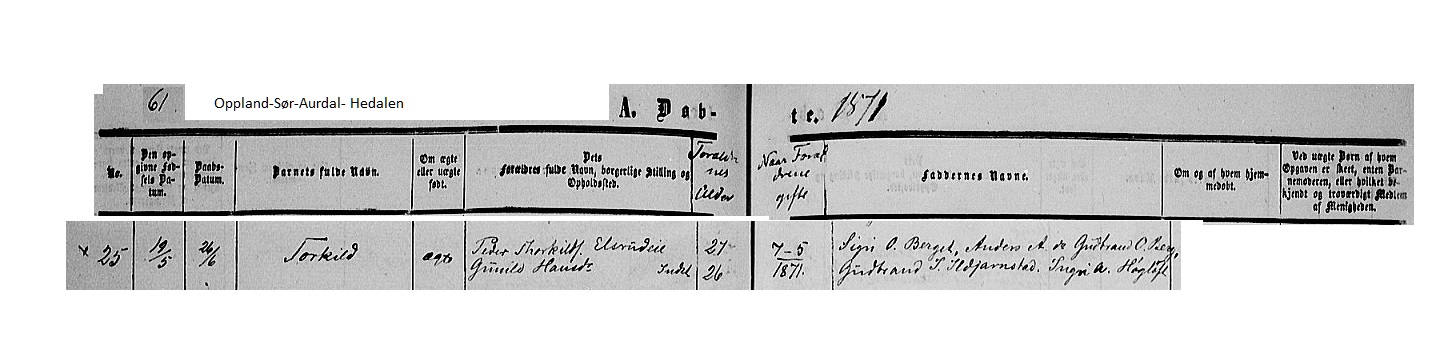 61 Oppland-Sør-Aurdal- Hedalen
A. Døb-
te. 1871
No.
Den op-
givne Fød-
sels Da-
tum.
Daabs-
Datum.
Barnets fulde Navn.
Om ægte
eller uægte
født.
Dets
Forældres fulde Navn, borgerlige Stilling og
Opholdssted.
Foræld-
nes
Alder
Naar Foræl
drene
gifte
Faddernes Navne.
Om og af hvem hjem-
medøbt.
Ved uægte Barn af hvem
Opgaven er skeet, enten Bar-
nemoderen, eller hvilket be-
kjendt og troværdigt Medlem
af Menigheden.
25
19/5
26/6
Torkild
ægte
Peder Thorkilds. Elsrudeie
Gunild Hansd.
27
26
7-5
1871.
Sigri O. Berget, Anders A. do Gudbrand O. Berg,
Gudbrand I. Ildjarnstad. Ingri A. Høgløft